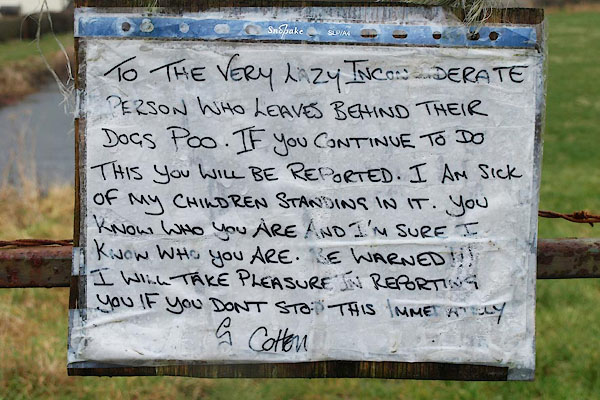 Snopake SLP/A4
TO THE VERY LAZY INCONSIDERATE
PERSON WHO LEAVES BEHIND THEIR
DOGS POO. IF YOU CONTINUE TO DO
THIS YOU WILL BE REPORTED. I AM SICK
OF MY CHILDREN STANDING IN IT. YOU
KNOW WHO YOU ARE AND I'M SURE I
KNOW WHO YOU ARE. BE WARNED!!!
I WILL TAKE PLEASURE IN REPORTING
YOU IF YOU DONT STOP THIS IMMEDIATELY